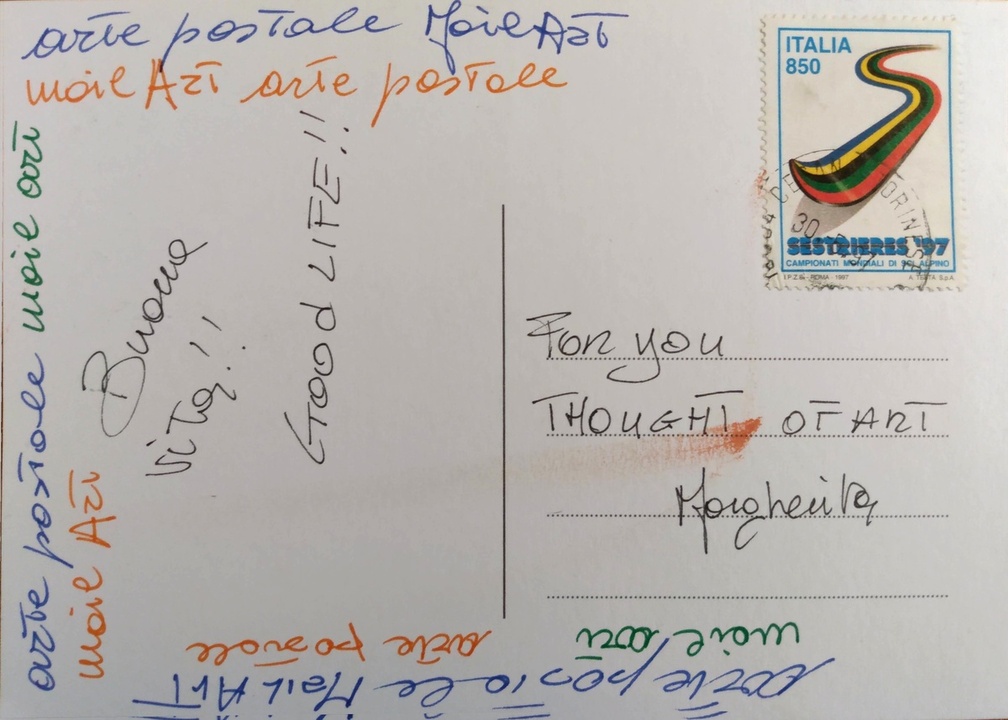 arte postale Mail Art
mail Art arte postale
arte postale mail art
mail Art
Buona
vita!!
Good LIFE!!
ITALIA
850
SESTRIERES '97
CAMPIONATI MONDIALI DI SCI ALPINO
I.P.Z.S. - ROMA - 1997
A. TESTA S.p.A.
TORINESE
30
For you
THOUGHT OF ART
Margherita
mail art
arte postale
arte postale Mail Art